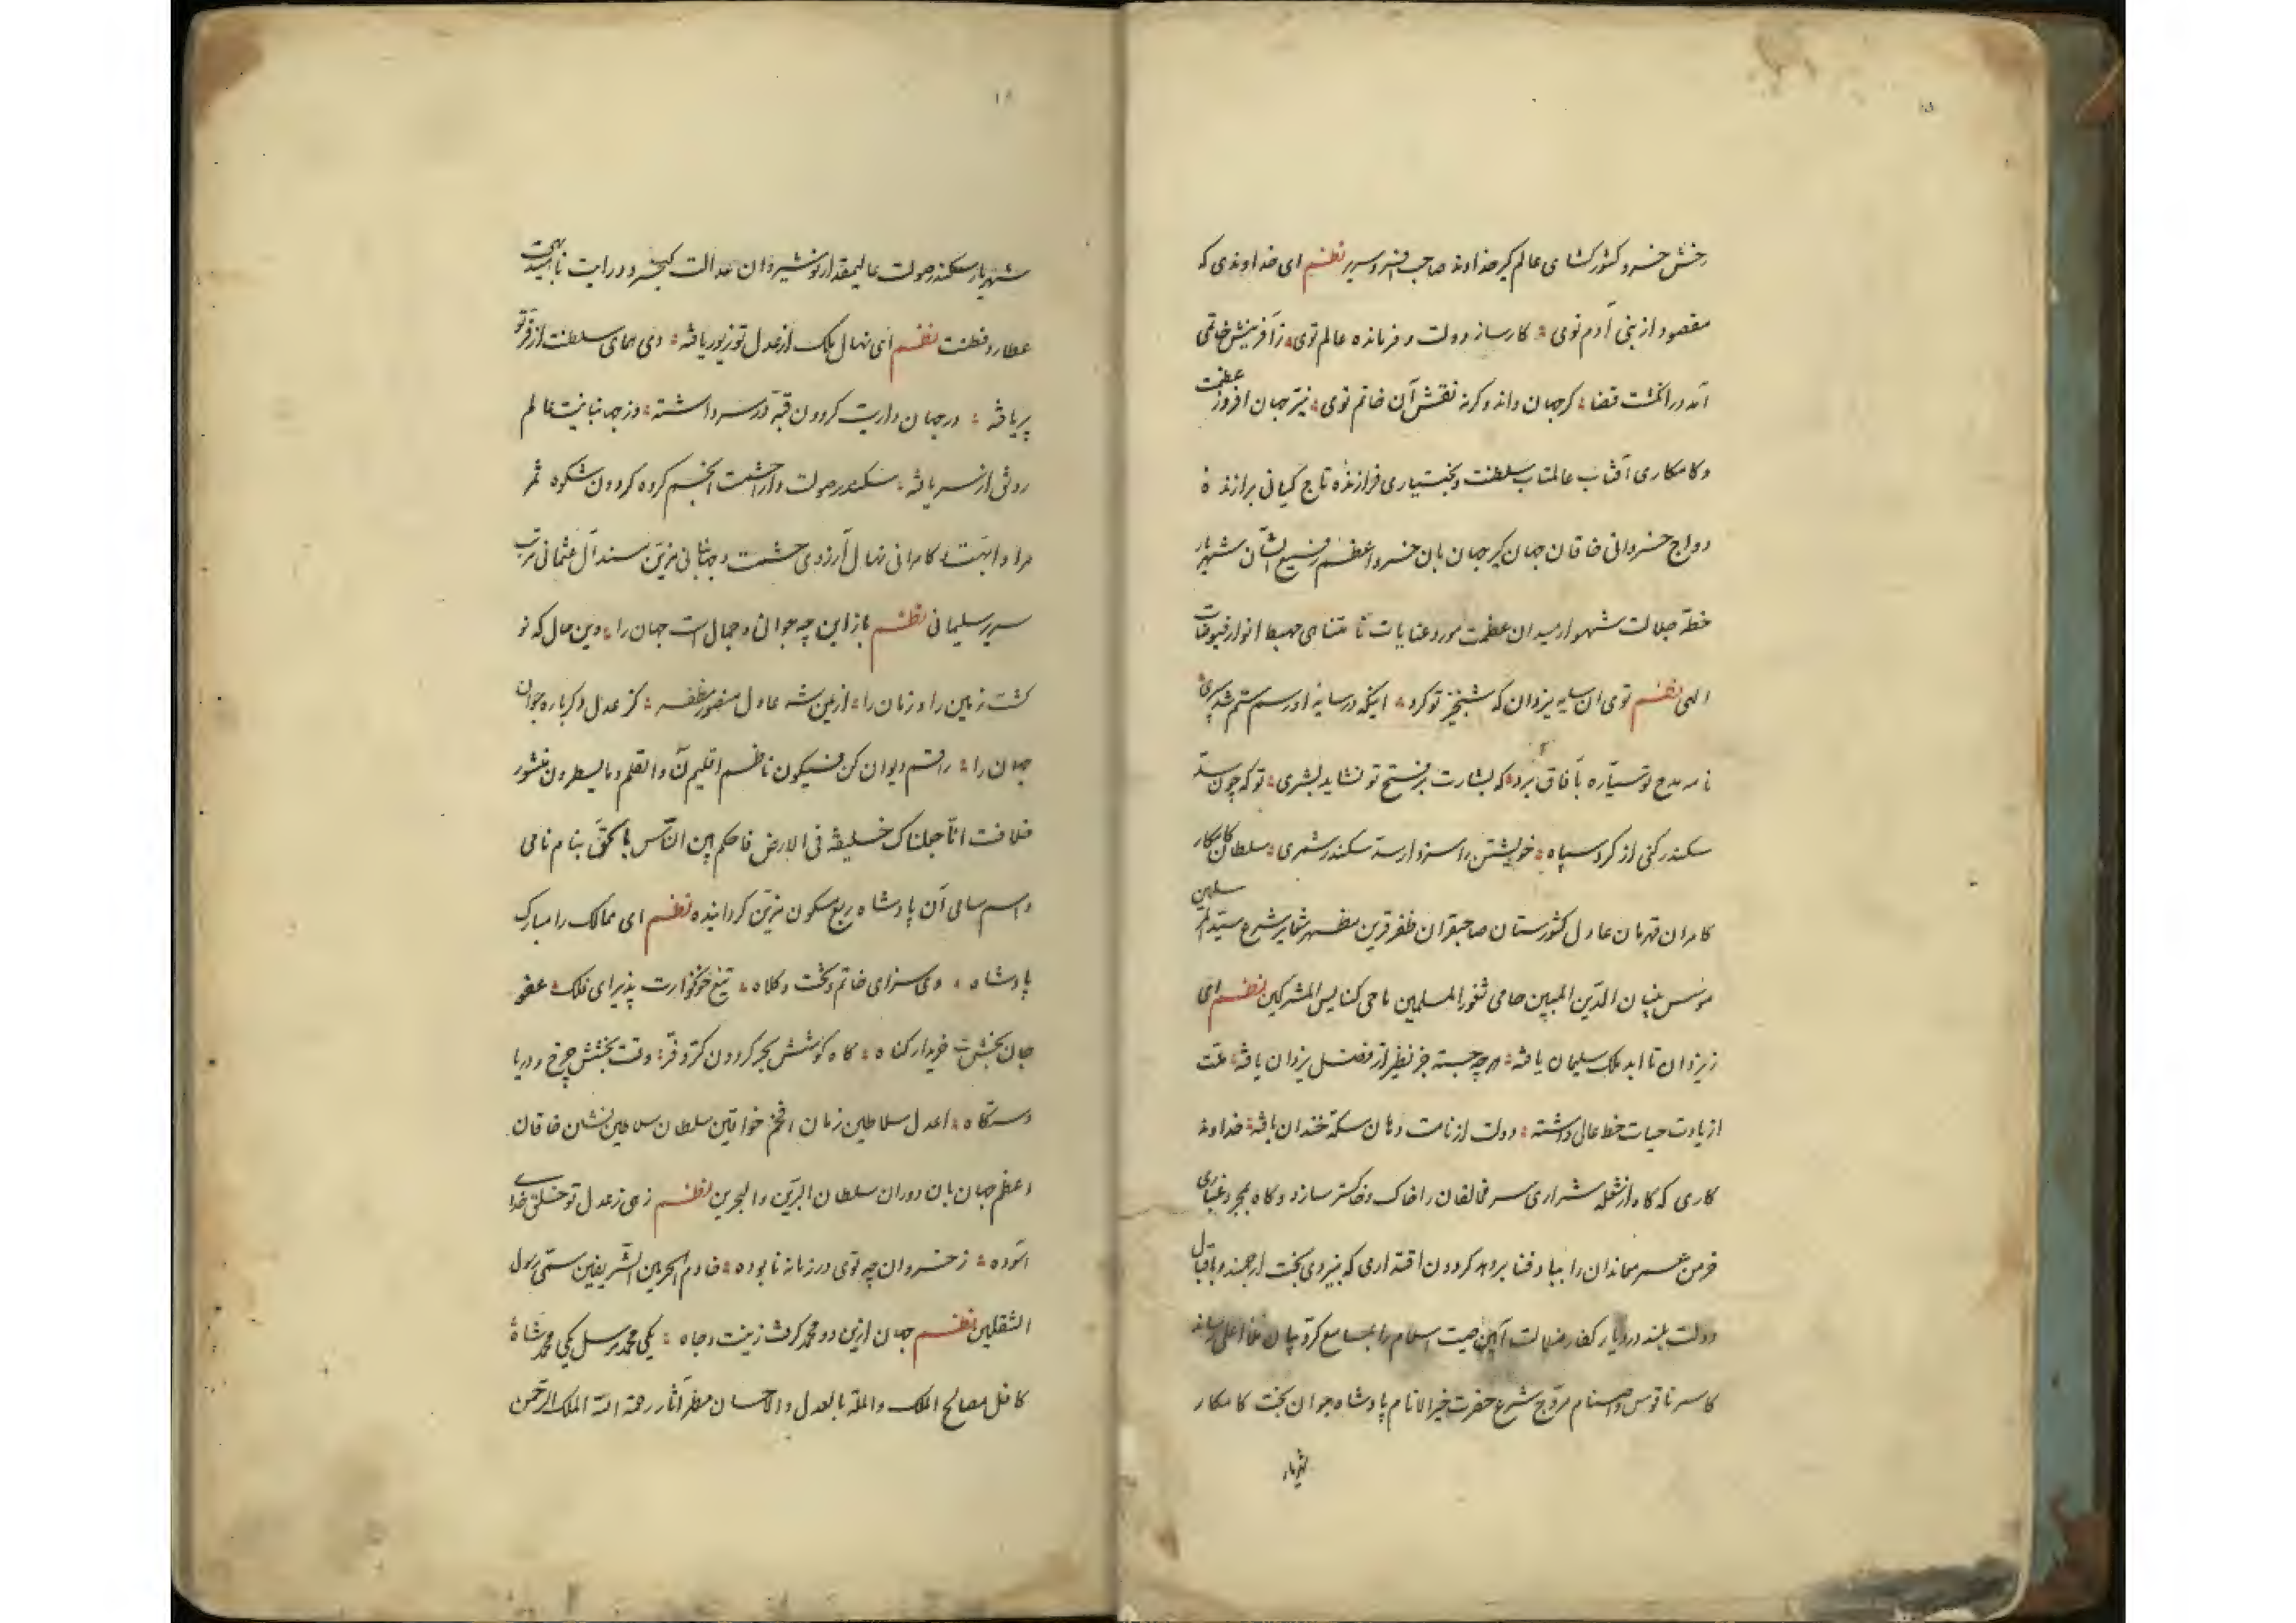 رخش خسرو کشورکشای عالم کیر خداوند صاحب افسر و سریر نظم ای خداوندی که
مقصود از بنی آدم توی ؞ کارساز دولت و فرمانده عالم توی ؞ زآفرینش خاتمی
آمد در انکشت قضا ؞ کر جهان داند و کرنه نقش آن خاتم توی ؞ نیّر جهان افروز عظمت
و کامکاری آفتاب عالمتاب سلطنت و بختیاری فرازندهٔ تاج کیانی برازندهٔ
دواج خسروانی خاقان جهان کیر جهان بان خسرو اعظم رفیع الشّان شهریار
خطّهٔ جلالت شهسوار میدان عظمت مورد عنایات نامتناهی مهبط انوار فیوضات
الهی نظم توی ان سایهٔ یزدان که تو کرد ؞ اینکه در سایهٔ او رسم ستم شد سپری
نامه مدح تو سیّاره بآفاق برد ؞ که بشارت بر فتح تو نشاید بشری ؞ تو که چون سدّ
سکندر کنی از کرد سپاه ؞ خویشتن را سزد ار سکندر شمری ؞ سلطان کامکار
کامران قهرمان عادل کشورستان صاحبقران ظفر قرین مظهر شعایر شرع سیّد المرسلین
موسّس بنیان الدّین المبین حامی ثغور المسلمین ماحی کنایس المشرکین نظم ای
زیزدان تا ابد ملک سلیمان یافته ؞ هرچه جسته جز نظیر از فضل یزدان یافته ؞ ملّت
از یادت حیات خط عالی داشته ؞ دولت از نامت دهان سکّه خندان یافته ؞ خداوند
کاری که کاه از شعله شراری سر مخالفان را خاک و خاکستر سازد و کاه بمجرد غباری
خرمن عمر معاندان را بباد فنا بر دهد کردون اقتداری که بنیروی بخت ارجمند و باقبال
دولت بلند در دیار کفار ضلالت آیین صیت اسلام را بمسامع کرّوبیان ملا اعلی رساند
کاسر ناقوس و اصنام مروّج شرع حضرت خیر الانام پادشاه جوان بخت کامکار
شهریار
شهریار سکندر صولت عالیمقدار نوشیروان عدالت کیخسرو درایت ناهید بهجت
عطارد فطنت نظم ای نهال ملک از عدل تو زیور یافته ؞ وی همای سلطنت از فرّ تو
پر یافته ؞ در جهان داریت کردون قبّه در سر داشته ؞ وز جهانبانیت عالم
رونق از سر یافته ؞ سکندر صولت دارا حشمت انجم کروه کردون شکوه ثمر
مراد ابهّت و کامرانی نهال آرزوی حشمت و جهانبانی مزیّن مسند آل عثمانی مرتب
سریر سلیمانی نظم باز این چه جوانی و جمال است جهان را ؞ وین حال که نو
کشت زمین را و زمان را ؞ از یمن شه عادل منصور مظفر ؞ کز عدل دکرباره جوان
جهان را ؞ راقم دیوان کن فیکون ناظم اقلیم نٓ والقلم وما یسطرون منشور
خلافت انّا جعلناک خلیفة فی الارض فاحکم بین النّاس بالحقّ بنام نامی
و اسم سامی آن پادشاه ربع مسکون مزیّن کردانیده نظم ای ممالک را مبارک
پادشاه ؞ وی سزای خاتم و تخت و کلاه ؞ تیغ خونخوارت پذیرای فلک ؞ عفو
جان بخشت خریدار کناه ؞ کاه کوشش بحر کردون کرّ و فرّ ؞ وقت بخشش چرخ و دریا
دستکاه ؞ اعدل سلاطین زمان افخم خواقین سلطان سلاطین نشان خاقان
اعظم جهان بان دوران سلطان البرّین والبحرین نظم زهی ز عدل تو خلق خدای
آسوده ؞ ز خسروان چه توی در زمانه نابوده ؞ خادم الحرمین الشّریفین سمّی رسول
الثقلین نظم جهان ازین دو محمد کرفت زینت و جاه ؞ یکی محمد مرسل یکی محمد شاه
کافل مصالح الملک والملّة بالعدل والاحسان مظهر آثار رحمة الله الملک الرّحمن